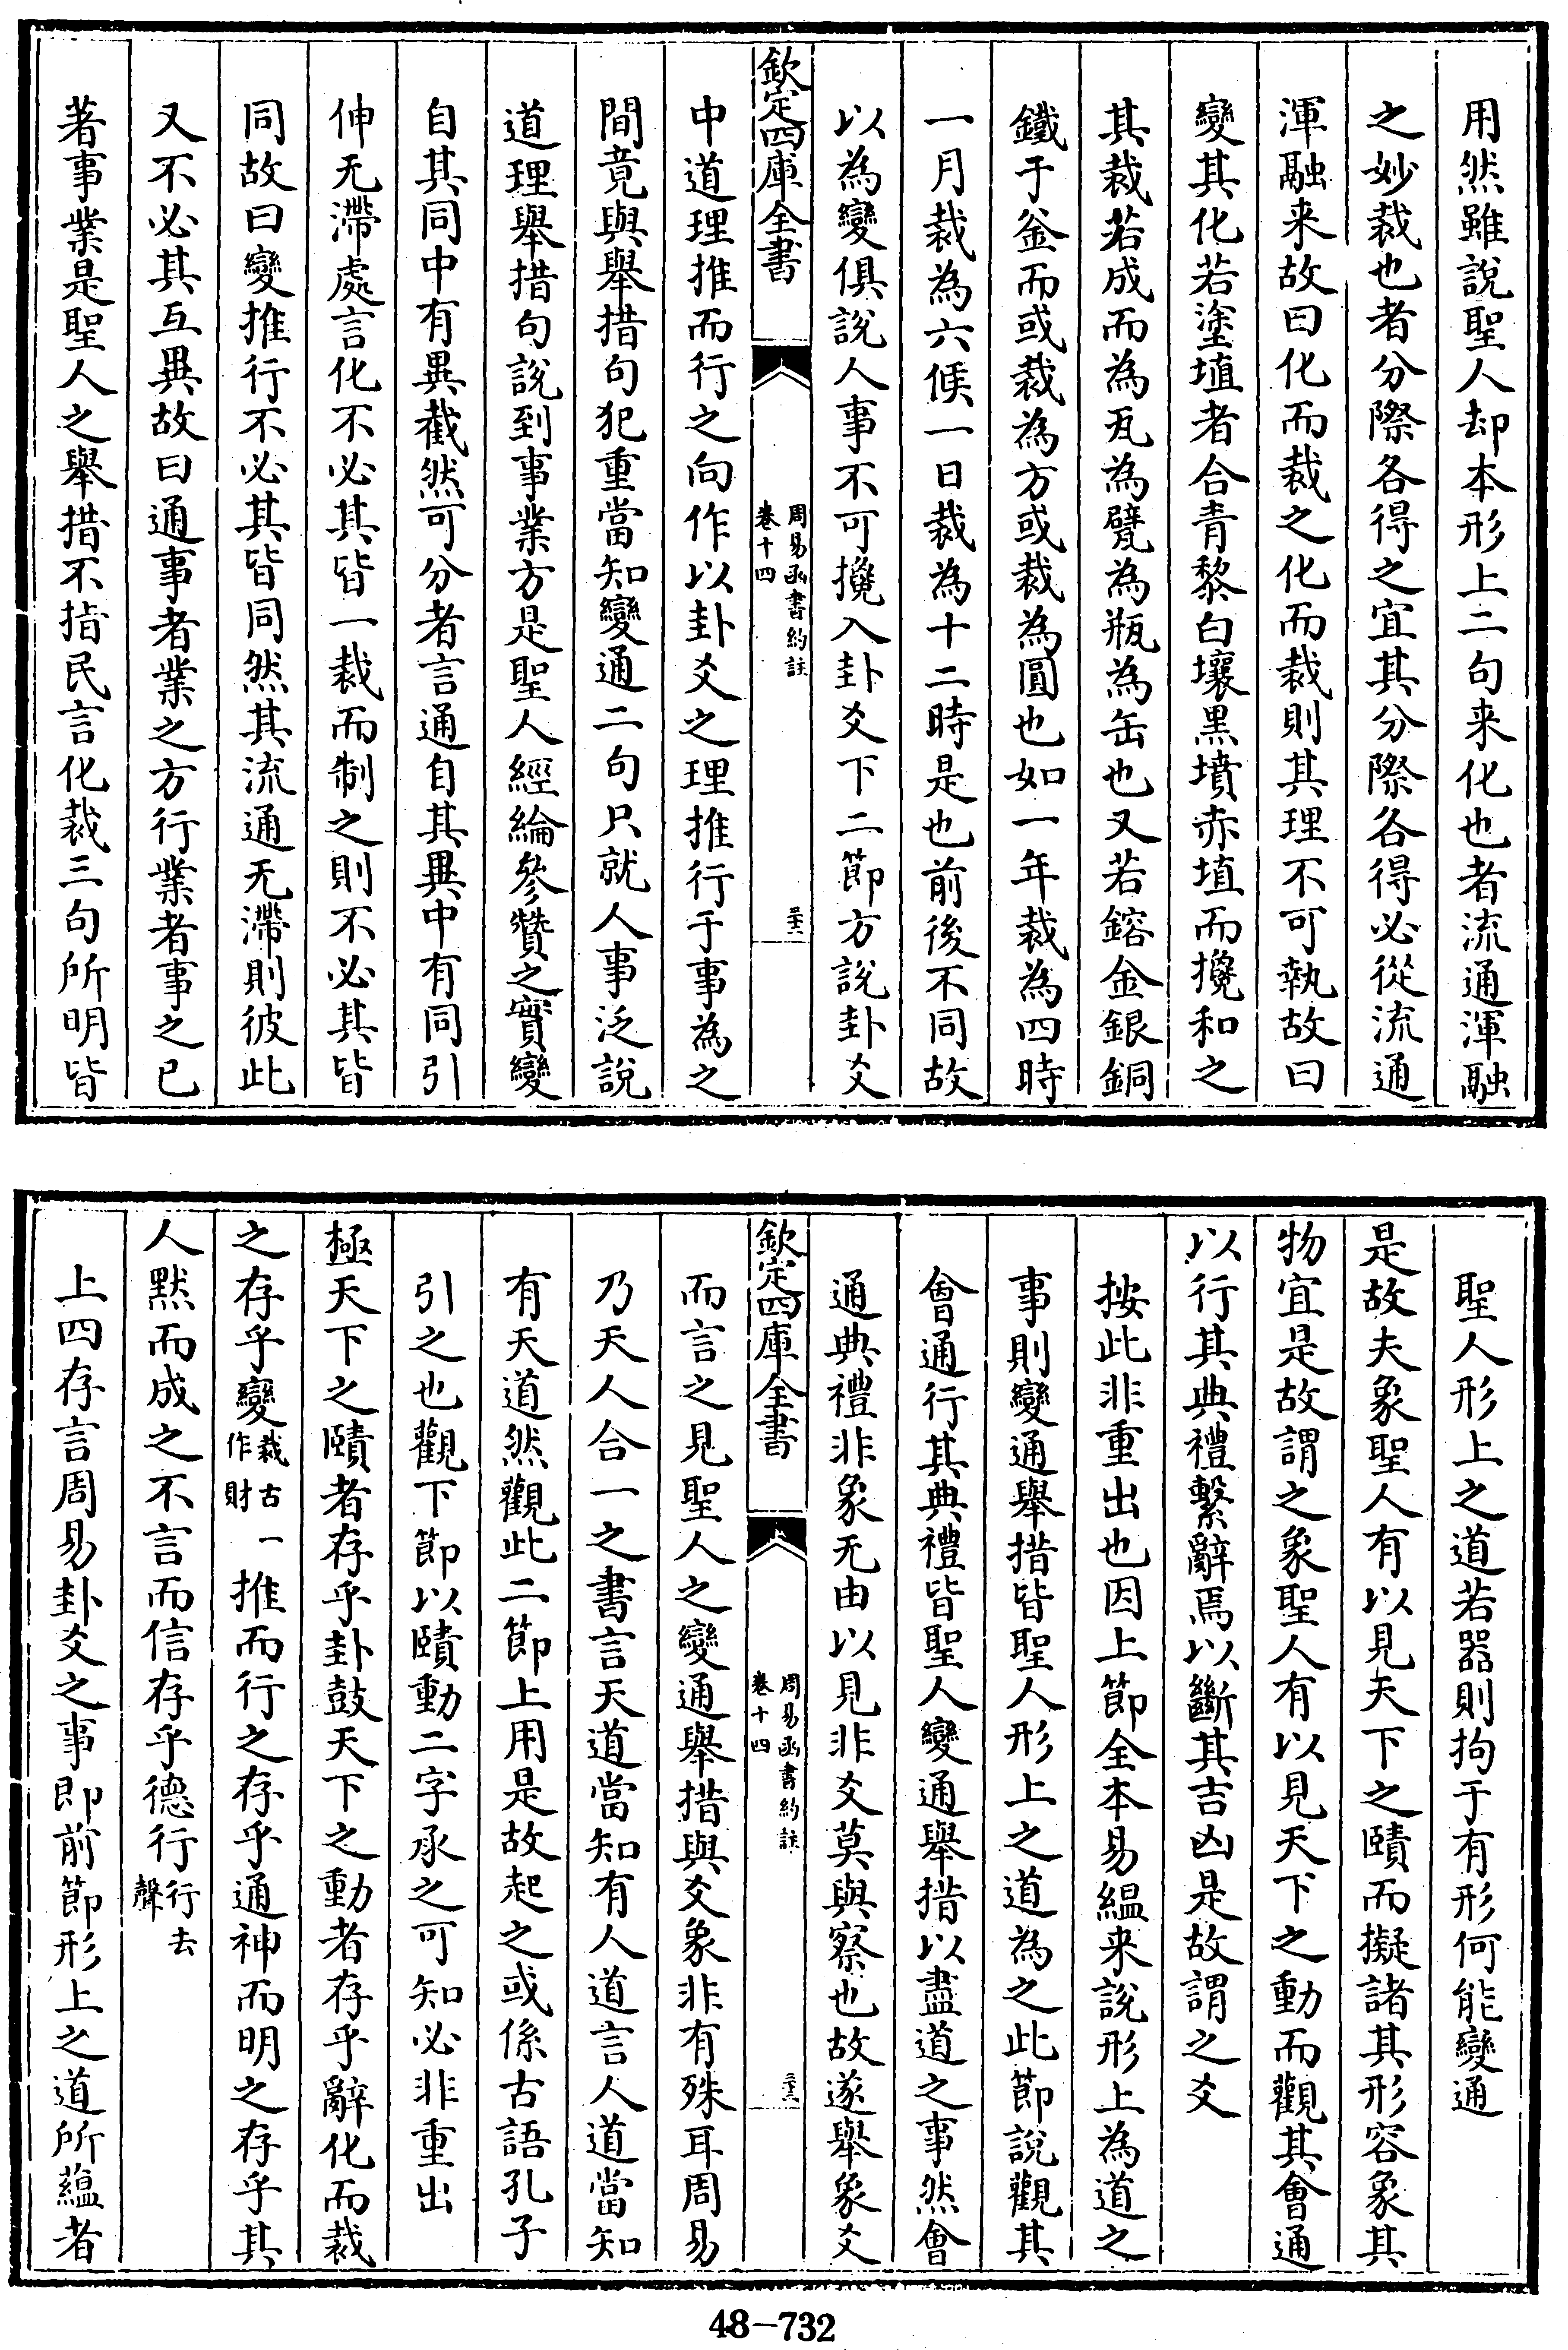 用然雖說聖人却本形上二句来化也者流通渾融
之妙裁也者分際各得之宜其分際各得必從流通
渾融来故曰化而裁之化而裁則其理不可執故曰
變其化若塗埴者合青黎白壤黒墳赤埴而攪和之
其裁若成而為瓦為甓為瓶為缶也又若鎔金銀銅
鐵于釜而或裁為方或裁為圓也如一年裁為四時
一月裁為六候一日裁為十二時是也前後不同故
以為變俱說人事不可攙入卦爻下二節方說卦爻
欽定四庫全書
周易函書約註
卷十四
中道理推而行之向作以卦爻之理推行于事為之
間竟與舉措句犯重當知變通二句只就人事泛說
道理舉措句說到事業方是聖人經綸參贊之實變
自其同中有異截然可分者言通自其異中有同引
伸无滯處言化不必其皆一裁而制之則不必其皆
同故曰變推行不必其皆同然其流通无滯則彼此
又不必其互異故曰通事者業之方行業者事之已
著事業是聖人之舉措不指民言化裁三句所明皆
聖人形上之道若器則拘于有形何能變通
是故夫象聖人有以見天下之賾而擬諸其形容象其
物宜是故謂之象聖人有以見天下之動而觀其會通
以行其典禮繫辭焉以斷其吉凶是故謂之爻
按此非重出也因上節全本易緼来說形上為道之
事則變通舉措皆聖人形上之道為之此節說觀其
會通行其典禮皆聖人變通舉措以盡道之事然會
通典禮非象无由以見非爻莫與察也故遂舉象爻
欽定四庫全書
周易函書約註
卷十四
而言之見聖人之變通舉措與爻象非有殊耳周易
乃天人合一之書言天道當知有人道言人道當知
有天道然觀此二節上用是故起之或係古語孔子
引之也觀下節以賾動二字承之可知必非重出
極天下之賾者存乎卦鼓天下之動者存乎辭化而裁
之存乎變裁古一作財推而行之存乎通神而明之存乎其
人黙而成之不言而信存乎德行行去聲
上四存言周易卦爻之事即前節形上之道所蘊者
48-732